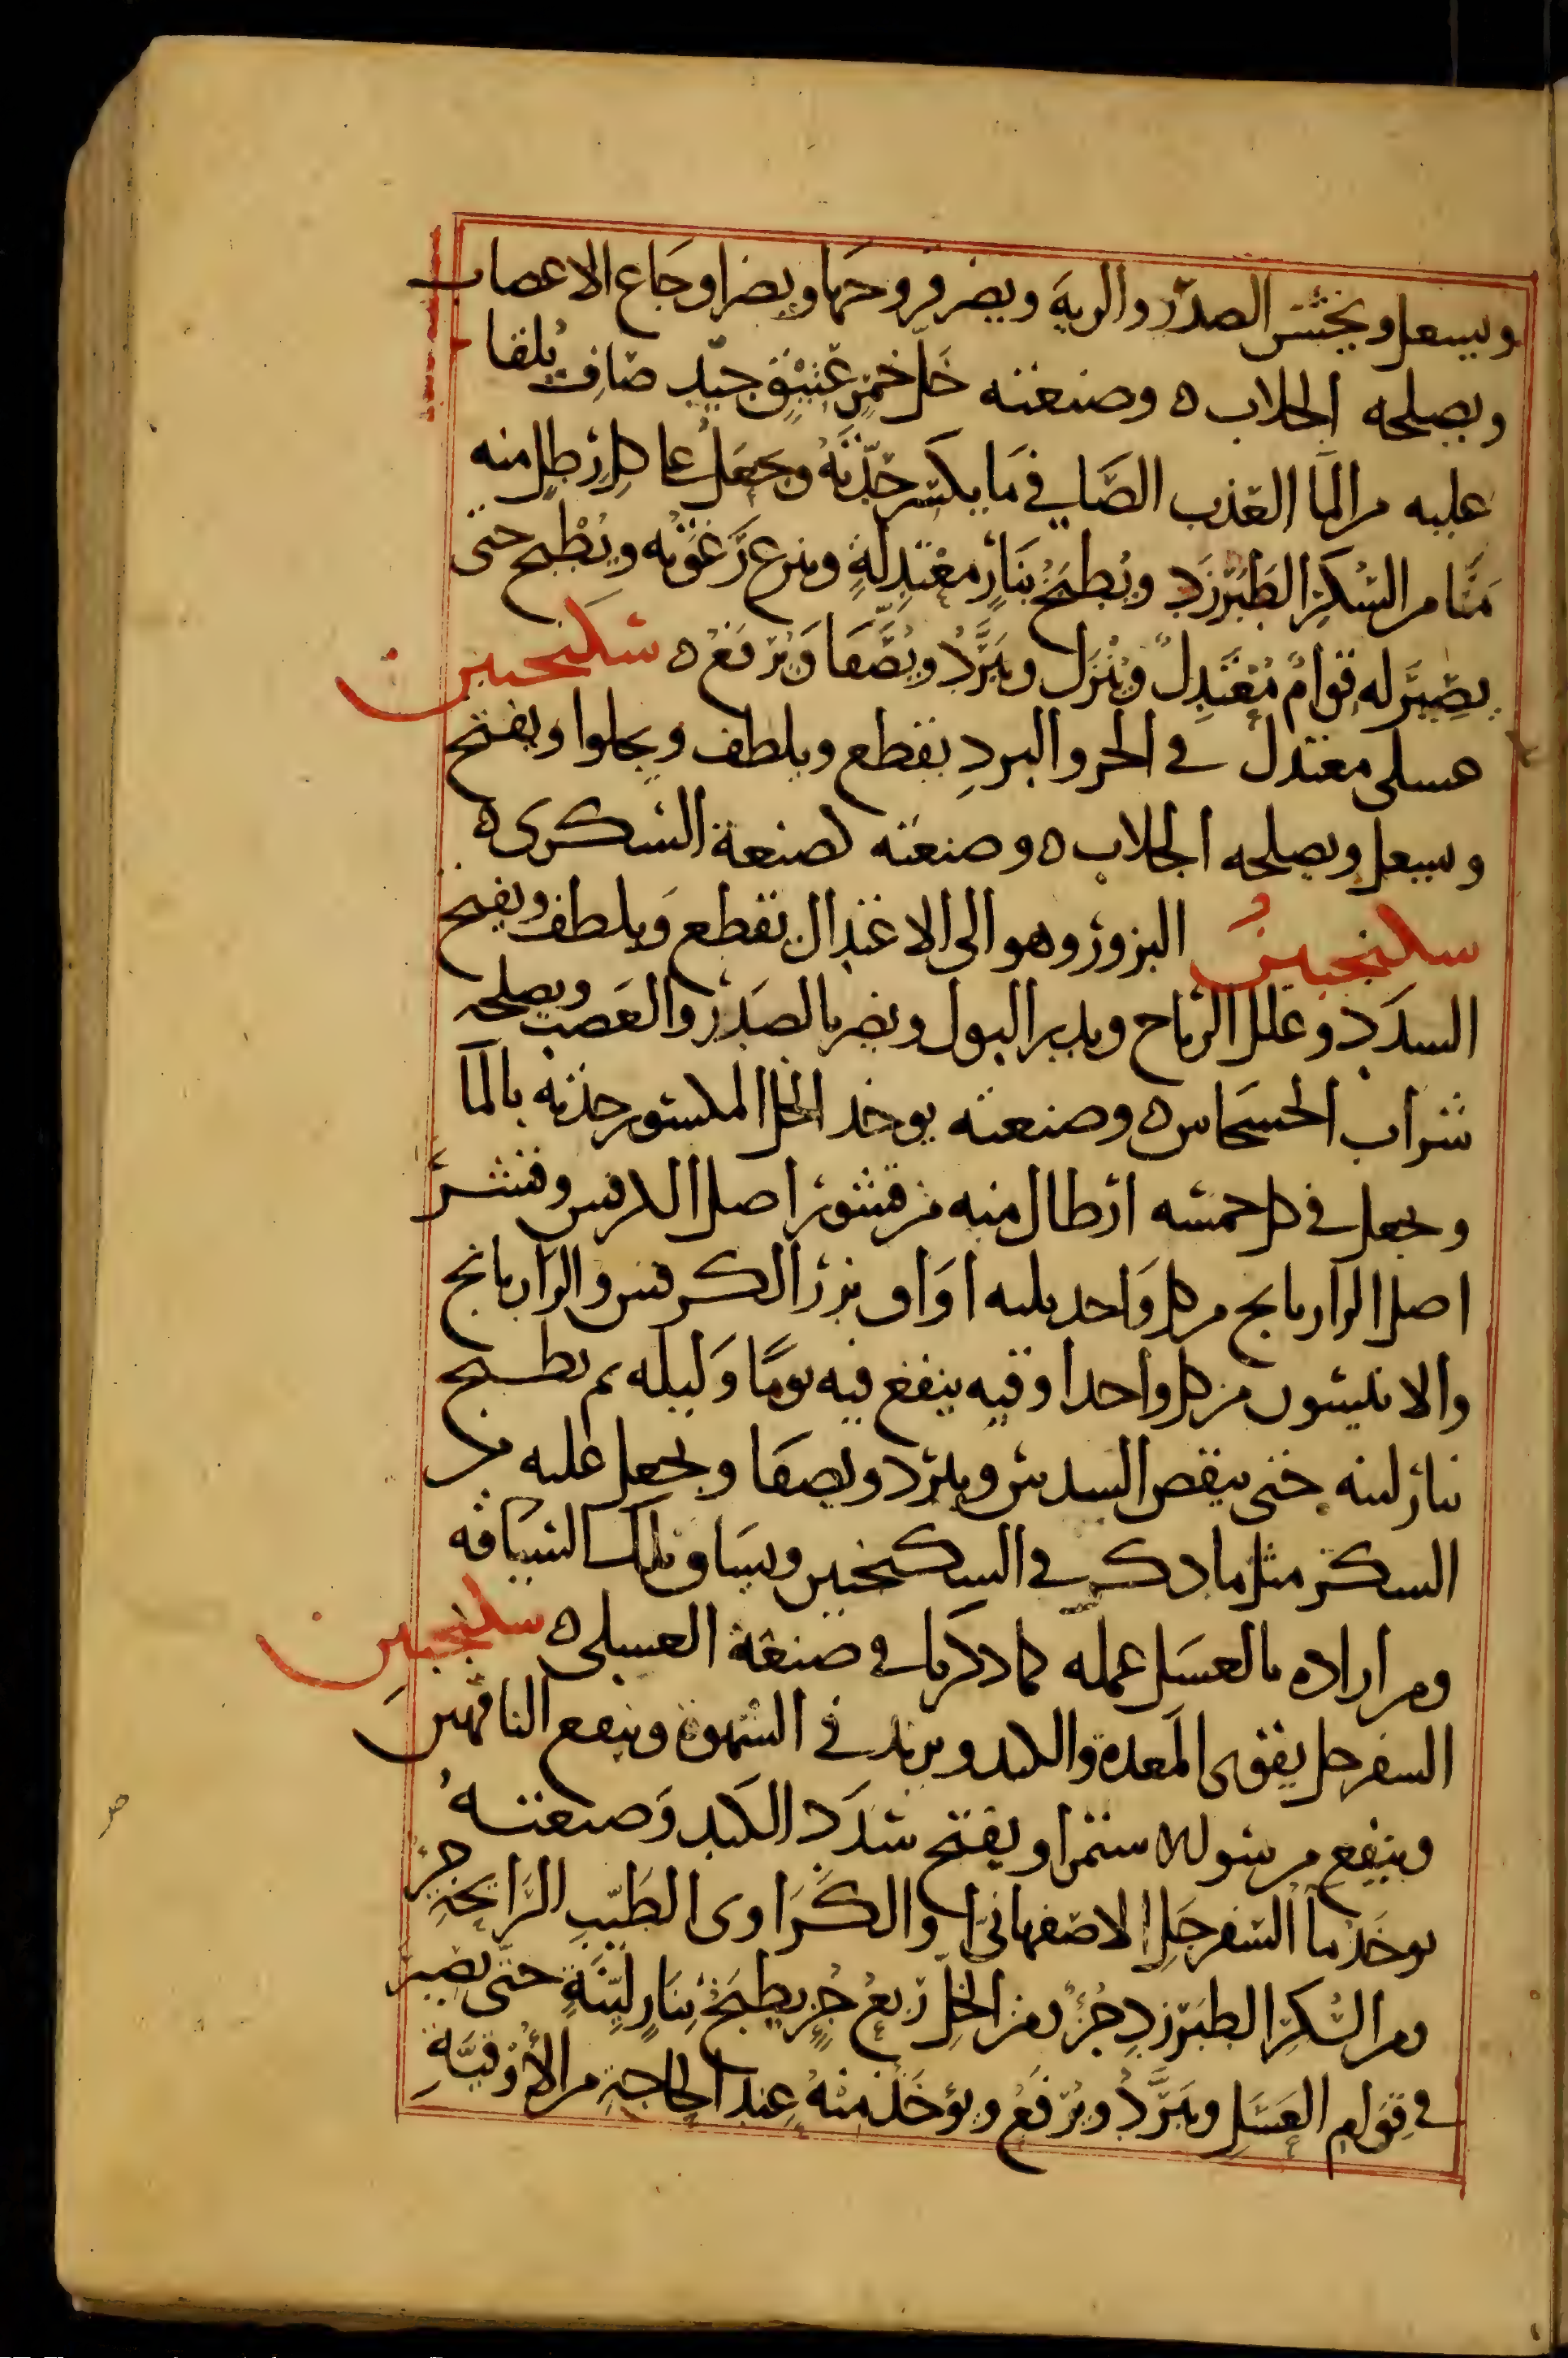 ويسعل ويخشن الصدر والرية ويضر قروحها ويضر اوجاع الاعصاب
ويصلحه الجلاب ه وصنعته خل خمر عتيق جيد صاف يلقا
عليه من الما العذب الصافي ما يكسر حدته ويجعل على كل رطل منه
منا من السكر الطبرزد ويطبخ بنار معتدلة وينزع رغوته ويطبخ حتى
يصير له قوام معتدل وينزل ويبرد ويصفا ويرفع ه سكنجبين
عسلى معتدل في الحر والبرد يقطع ويلطف ويجلوا ويفتح
ويسعل ويصلحه الجلاب ه وصنعته كصنعة السكرى ه
سكنجبين البزور وهو الى الاعتدال يقطع ويلطف ويفتح
السدد وعلل الرياح ويدر البول ويضر بالصدر والعصب ويصلحه
شراب الخشخاش ه وصنعته يوخد الخل المكسور حدته بالما
ويجعل في كل خمسه ارطال منه من قشور اصل الكرفس وقشر
اصل الرازيانج من كل واحد ثلثه اواق بزر الكرفس والرازيانج
والانيسون من كل واحد اوقيه ينقع فيه يوما وليله ثم يطبخ
بنار لينه حتى ينقص السدس ويبرد ويصفا ويجعل عليه من
السكر مثل ما دكر في السكنجبين ويساق تلك السياقه
ومن اراده بالعسل عمله كما دكرنا في صنعة العسلى ه سكنجبين
السفرجل يقوى المعدة والكبد ويزيد في الشهوة وينفع الناقهين
وينفع من سو الاستمرا ويفتح سدد الكبد وصنعته
يوخذ ما السفرجل الاصفهانى والكراوى الطيب الرايحة جز
ومن السكر الطبرزد جزء ومن الخل ربع جزء يطبخ بنار لينة حتى يصير
في قوام العسل ويبرد ويرفع ويؤخذ منه عند الحاجة من الأوقية